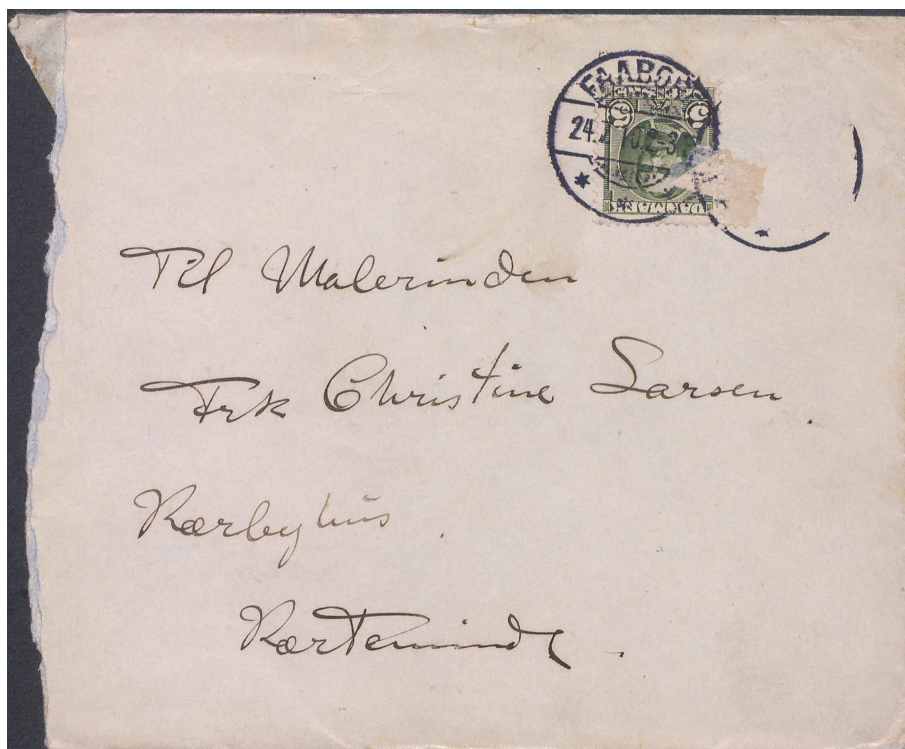 FAABORG
5 5
DANMARK
Til Malerinden
Frk Christine Larsen
Kærbyhus
Kærteminde